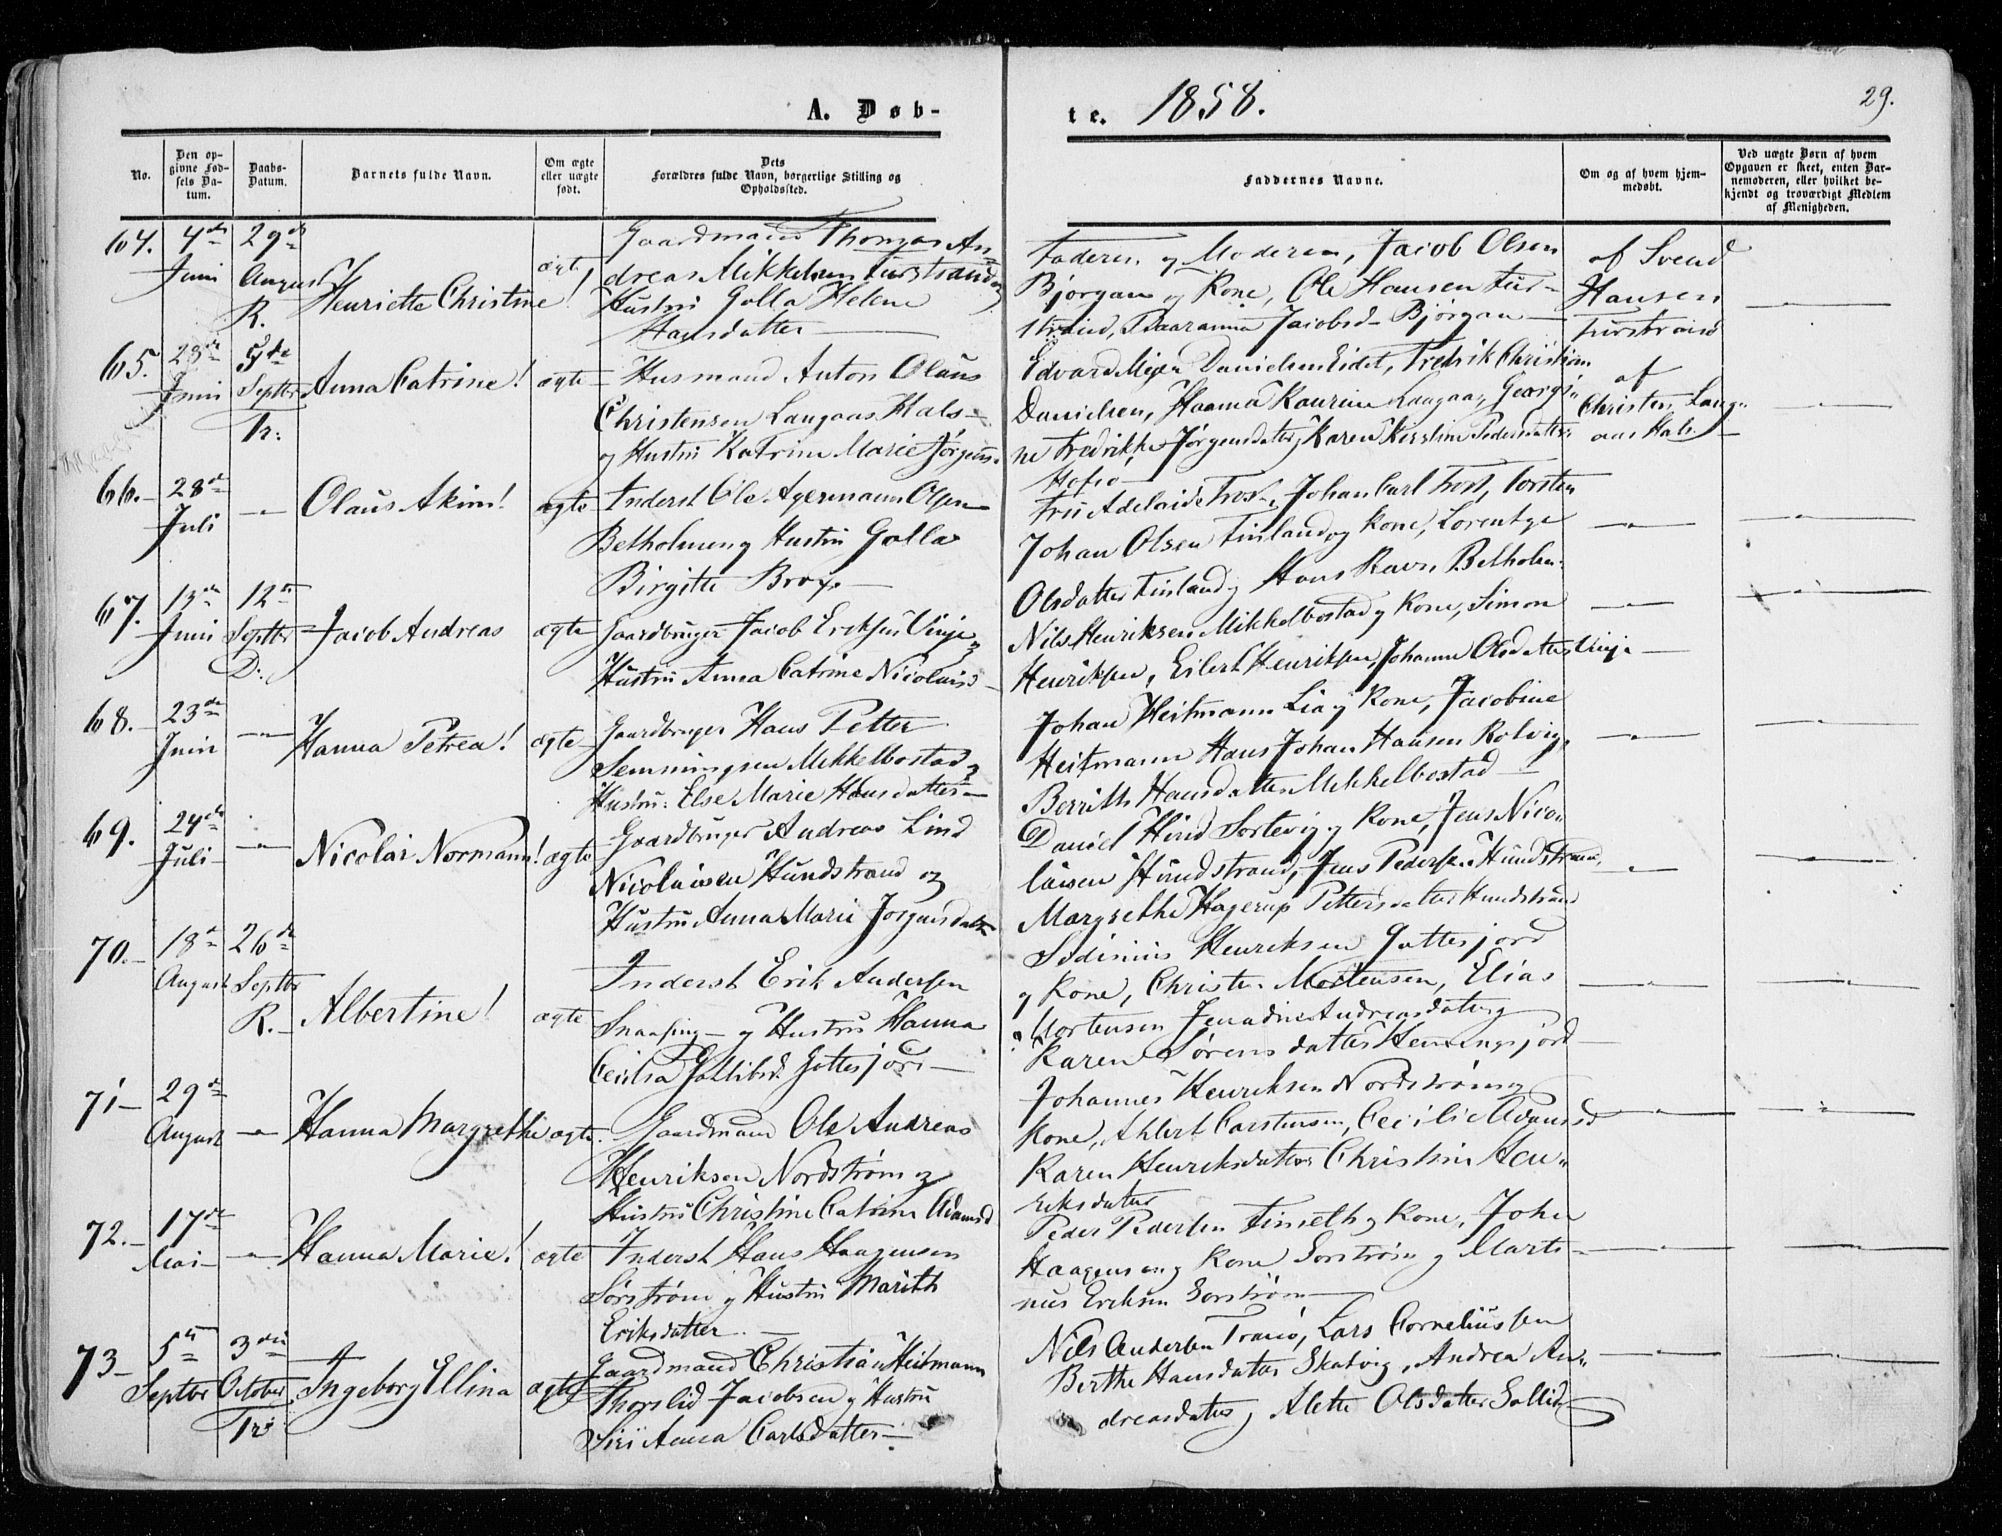 A. Døb-
te. 1858.
29.
No.
Den op-
givne Fød-
sels Da-
tum.
Daabs-
Datum.
Barnets fulde Navn.
Om ægte
eller uægte
født.
Dets
Forældres fulde Navn, borgerlige Stilling og
Opholdssted.
Faddernes Navne.
Om og af hvem hjem-
medøbt.
Ved uægte Børn af hvem
Opgaven er skeet, enten Bar-
nemoderen, eller hvilket be-
kjendt og troværdigt Medlem
af Menigheden.
64. 4de Juni
29de August R.
Henriette Christine!
ægte
Gaardmand Thomas An-
dreas Mikkelsen Furstrand og
Hustru Golla Helene
Hansdatter
Faderen og Moderen, Jacob Olsen
Bjørgan og Kone, Ole Hansen Fur-
strand, Jacobsd. Bjørgan
af Svend
Hansen
Furstrand
65. 28de Juni
5te Septbr Tr:
Anna Catrine!
ægte
Husmand Anton Olaus
Christensen Langaas Hals
og Hustru Katrine Marie Jørgens.
Edvard Danielsen Eidet, Fredrik Christian
Danielsen, Hanna Kaurine Langaas, Georgi-
ne Fredrikke Jørgensdatter, Karen Kirstine Pedersdatter
af
Christen Lang-
aas Hals.
66. 28de Juli
Olaus Akim!
ægte
Inderst Ole Agermann Olsen
Betholmen og Hustru Golla
Birgitte Brox
Fru Adelaide Frost, Johan Carl Frost, Torsten
Johan Olsen Finland og Kone, Lorentze
Olsdatter Finland, Hans Ravn Betholm.
67. 13de Juni
12te Septbr D:
Jacob Andreas
ægte
Gaardbruger Jacob Eriksen Vinje og
Hustru Anna Catrine Nicolaisd
Nils Henriksen Mikkelbostad og Kone, Simon
Henriksen, Eilert Henriksen, Johanna Olsdatter Vinje
68. 23de Juni
Hanna Petrea!
ægte
Gaardbruger Hans Petter
Semmingsen Mikkelbostad og
Hustru: Else Marie Hansdatter
Johan Heitmann Lia og Kone, Jacobine
Heitmann Hans Johan Hansen Rolvig,
Berrith Hansdatter Mikkelbostad
69. 24de Juli
Nicolai Normann!
ægte
Gaardbruger Andreas Lind
Nicolaisen Hundstrand og
Hustru Anna Marie Jørgensdatter
Daniel Hind Sortevig og Kone, Jens Nico-
laisen Hundstrand, Jens Pedersen Hundstrand,
Margrethe Hagerup Pettersdatter Hundstrand
70. 18de August
26de Septbr R.
Albertine!
ægte
Inderst Erik Andersen
og Hustru Hanna
Cecilia Gottesjord
Henriksen Gottesjord
og Kone, Christen Mortensen, Elias
Mortensen Andreasdatter og
Karen Sørensdatter Hemmingsjord
71 29de August
Hanna Margrethe
ægte
Gaardmand Ole Andreas
Henriksen Nordstrøm og
Hustru Christine Catrine Adamsd
Johannes Henriksen Nordstrøm og
Kone, Ahlert Carstensen, Cecilie Adamsd
Karen Henriksdatter Christine Hen-
riksdatter
72. 17de Mai
Hanna Marie!
ægte
Inderst Hans Haagensen
Sørstrøm og Hustru Marith
Eriksdatter.
Peder Pedersen Finseth og Kone, John
Haagensen og Kone Sorstrøm og Marti-
nus Eriksen Sorstrøm
73 5te Septbr
3die October Tr:
Ingeborg Ellina
ægte
Gaardmand Christian Heitmann
Jacobsen og Hustru
Siri Anna Carlsdatter
Nils Andersen Tranø, Lars Corneliussen
Berthe Hansdatter Skatvig, Andrea An-
dreasdatter, Alette Olsdatter Sollid